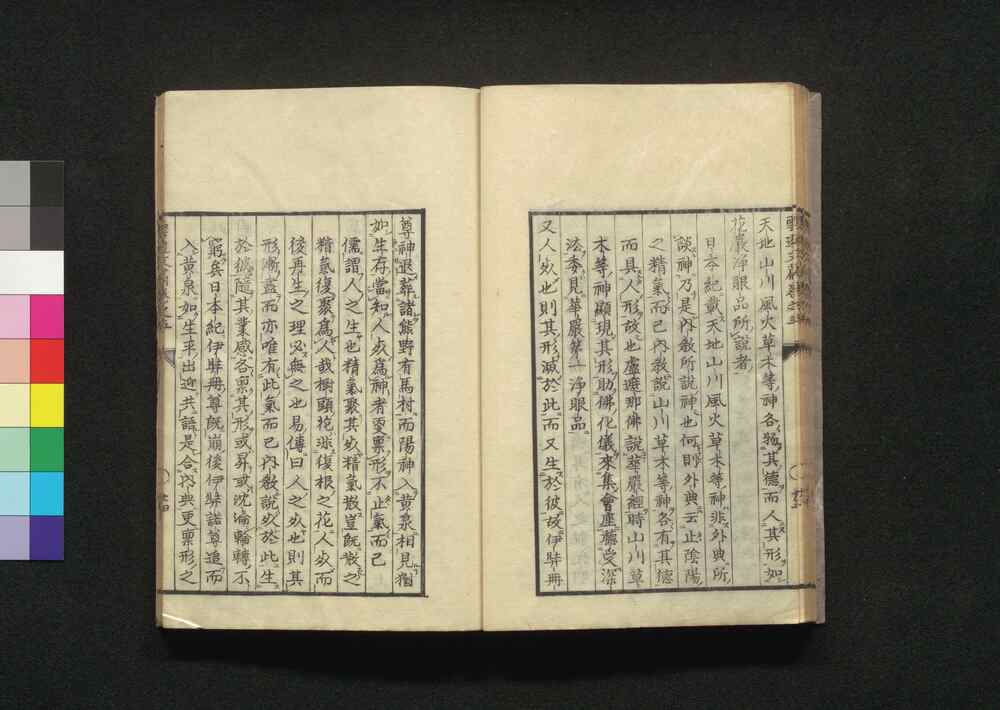 天地山川風火草木等神各物其德而人其形如
花嚴淨眼品所說者
日本紀載天地山川風火草木等神非外典所
談神乃是內教所說神也何則外典云止陰陽
之精氣而已內教說山川草木等神各有其德
而具人形故也盧遮那佛說華嚴經時山川草
木等神顯現其形助佛化儀來集會座聽受深
法委見華嚴第一淨眼品
又人死也則其形滅於此而又生於彼故伊弉冊
尊神退葬諸熊野有馬村而陽神入黃泉相見猶
如生存當知人死為神者更稟形不止氣而已
儒謂人之生也精氣聚其死精氣散豈既散之
精氣復聚為人哉樹頭花落復根之花人死而
後再生之理必無之也易傳曰人之死也則其
形漸盡而亦唯有此氣而已內教說死於此生
於彼隨其業感各稟其形或昇或沈淪輪轉不
窮矣日本紀伊弉冊尊既崩後伊弉諾尊追而
入黃泉如生平出迎共語是合內典更稟形之